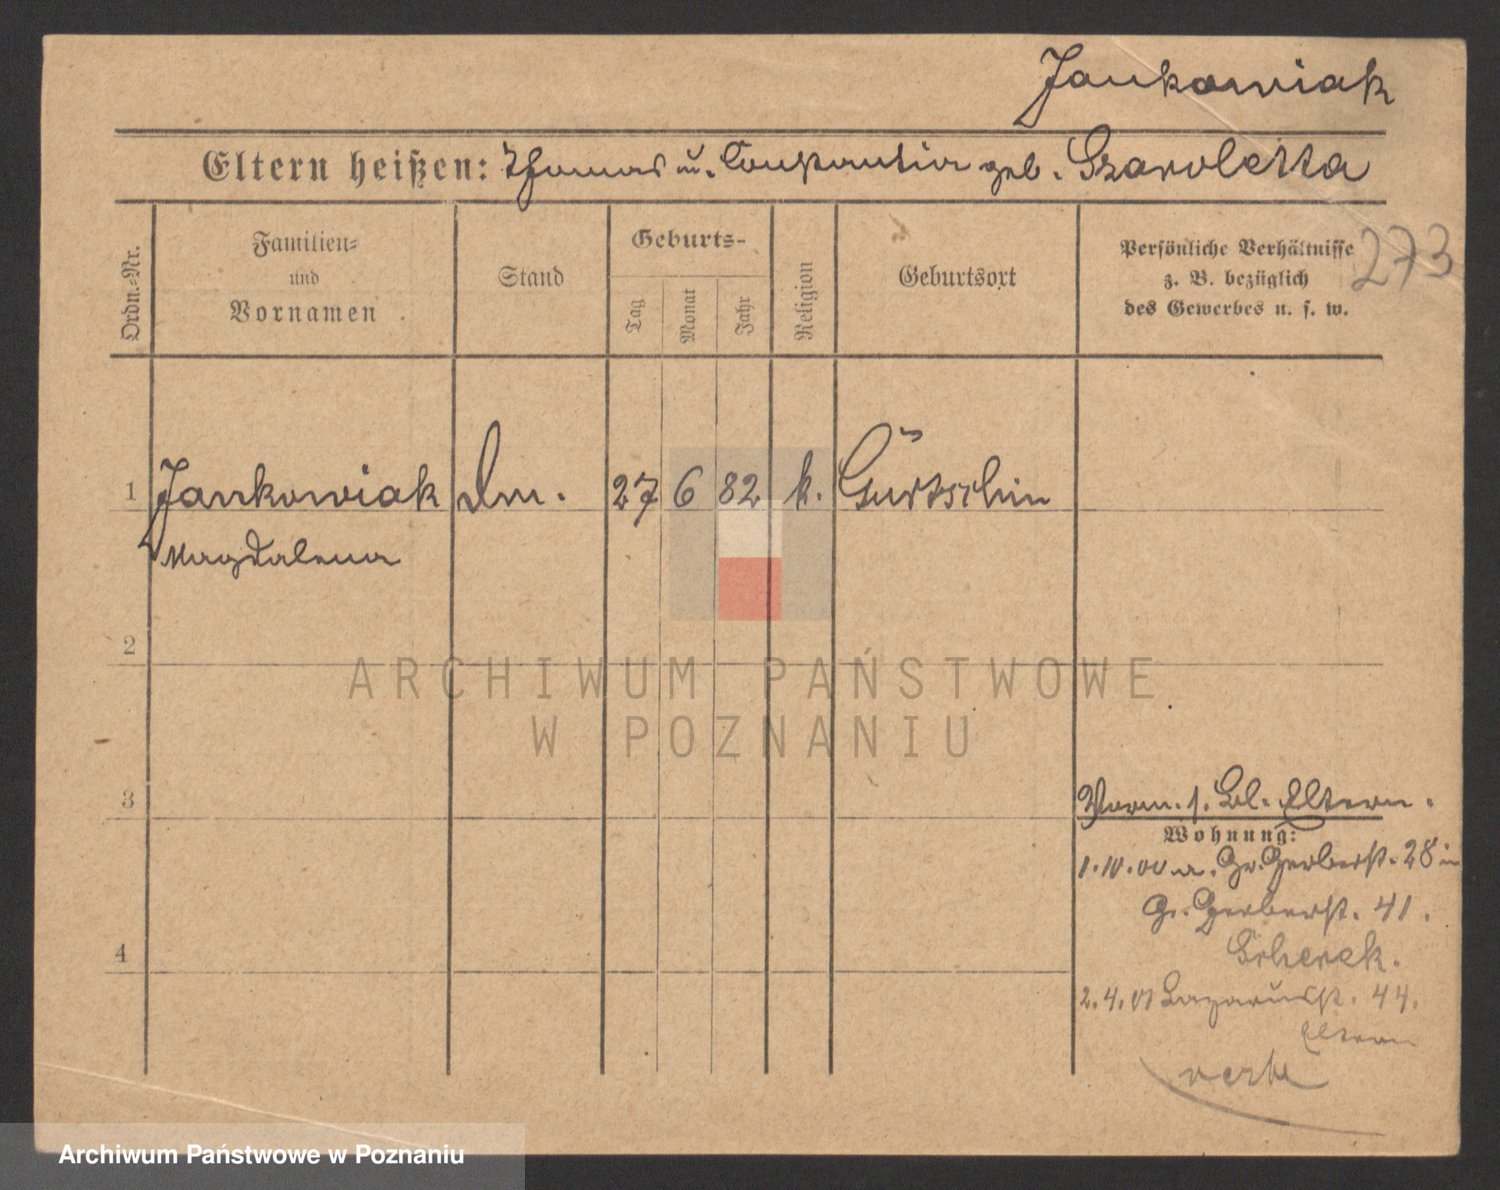 Jankowiak
Eltern heißen: Thomas u. Constantia geb. Szaroletta
273
Ordn.-Nr.
Familien-
und
Vornamen
Stand
Geburts-
Tag
Monat
Jahr
Religion
Geburtsort
Persönliche Verhältnisse
z. B. bezüglich
des Gewerbes u. s. w.
1 Jankowiak Dm. 27 6 82 k. Gurtschin
Magdalena
2
ARCHIWUM PAŃSTWOWE
W POZNANIU
3
Vorm. s. Bl. Eltern.
Wohnung:
1.10.00 a. Gr. Gerberst. 28 in
Gr. Gerberst. 41.
Scherek.
4
2.4.01 Lazarusst. 44.
Eltern
Archiwum Państwowe w Poznaniu